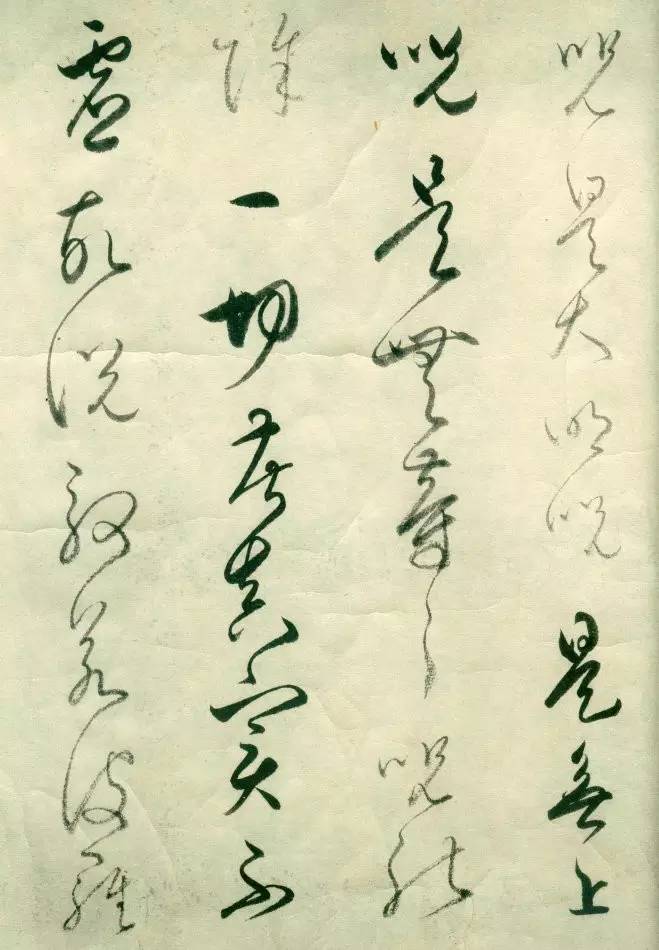 咒是大明咒是無上
咒是無等々咒能
除一切苦真實不
虛故說般若波羅